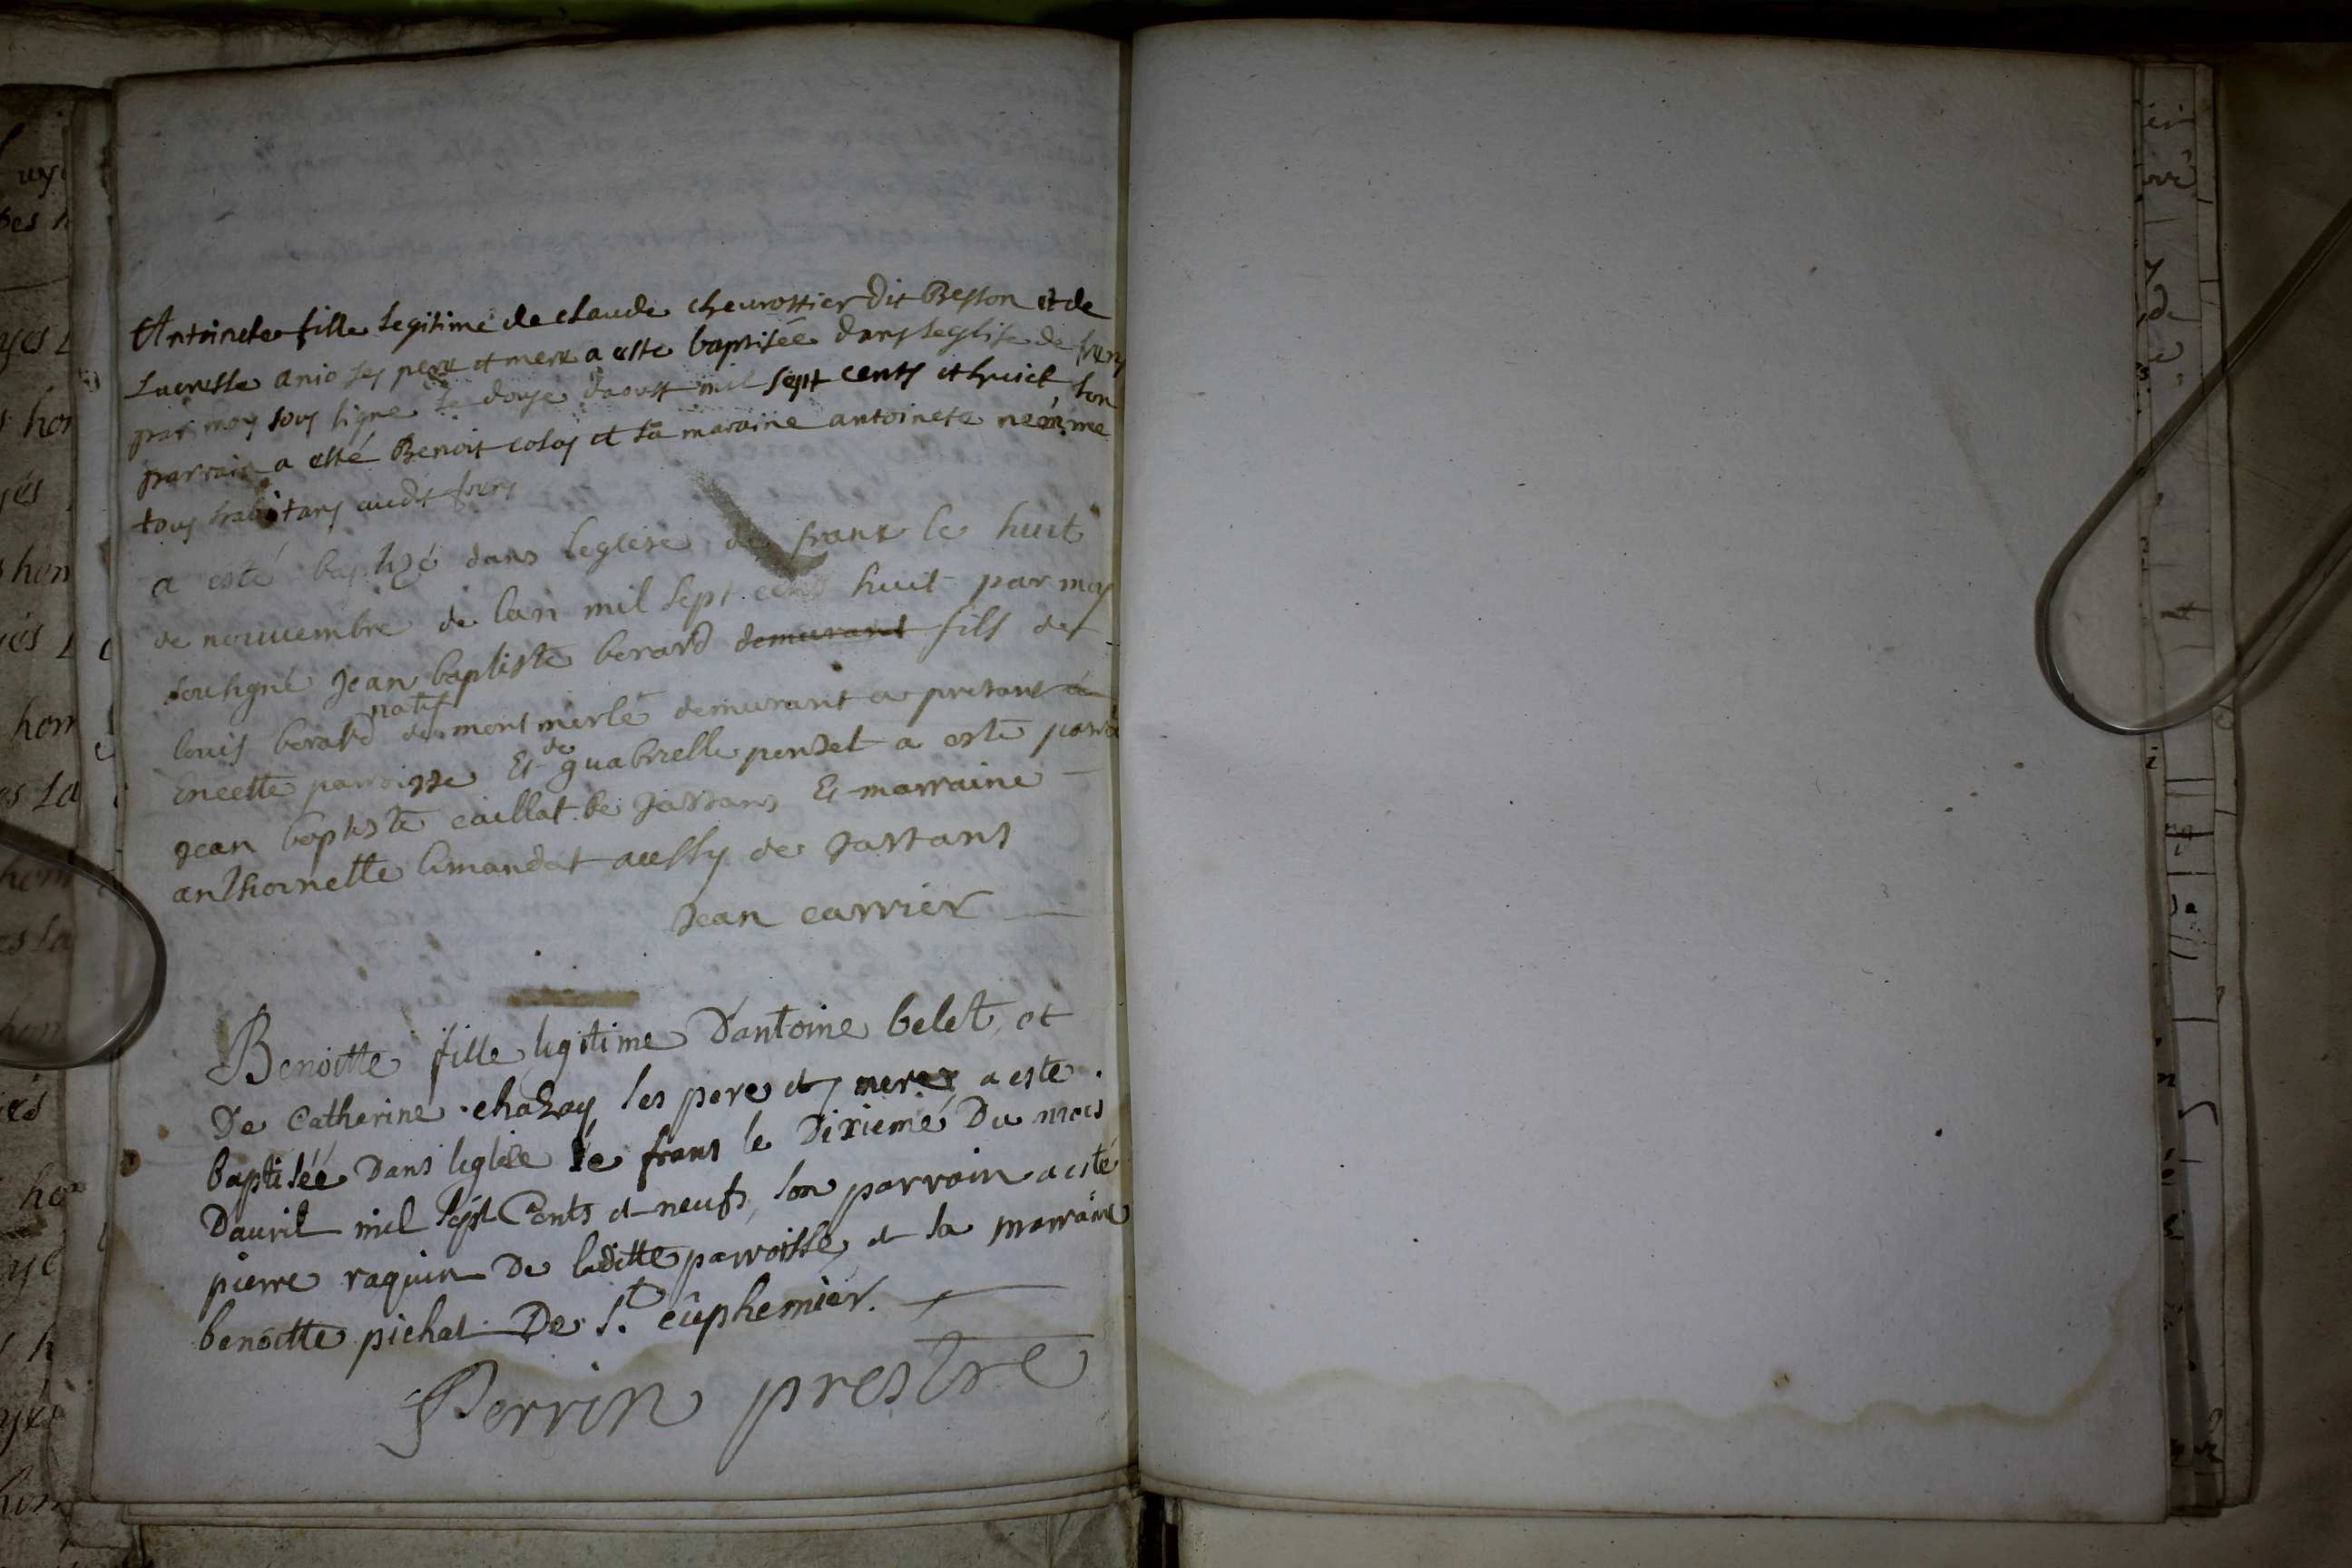 Antoinete fille legitime de claude cheurottier dit Besson et de
Lucresse anio ses pere et mere a esté baptisée dans leglise de frans
par moy sous signé le douze daoust mil sept cents et huict son
parrain a esté Benoit colas et sa maraine antoinete
tous habitans audit frans
a esté baptizé dans leglise de frans le huit
de nouuembre de lan mil sept cens huit par moy
sousigné Jean baptiste berard demurant fils de
natif
louis berard de montmerle demurant a presant
de
En cette parroisse Et guabrielle perset a esté
Jean baptiste caillat de Jassans Et marraine
anthoinette limandat aussy de Jassans
Jean carrier
Benoitte fille legitime D'antoine belet, et
De Catherine chazay ses pere et mere, a esté
baptisée Dans leglise de frans le Dixieme Du mois
Dauril mil sept Cents et neufs, son parrain a esté
pierre raquin De laditte parroisse, et sa marraine
benoitte pichat De St. euphemier.
Perrin prestre